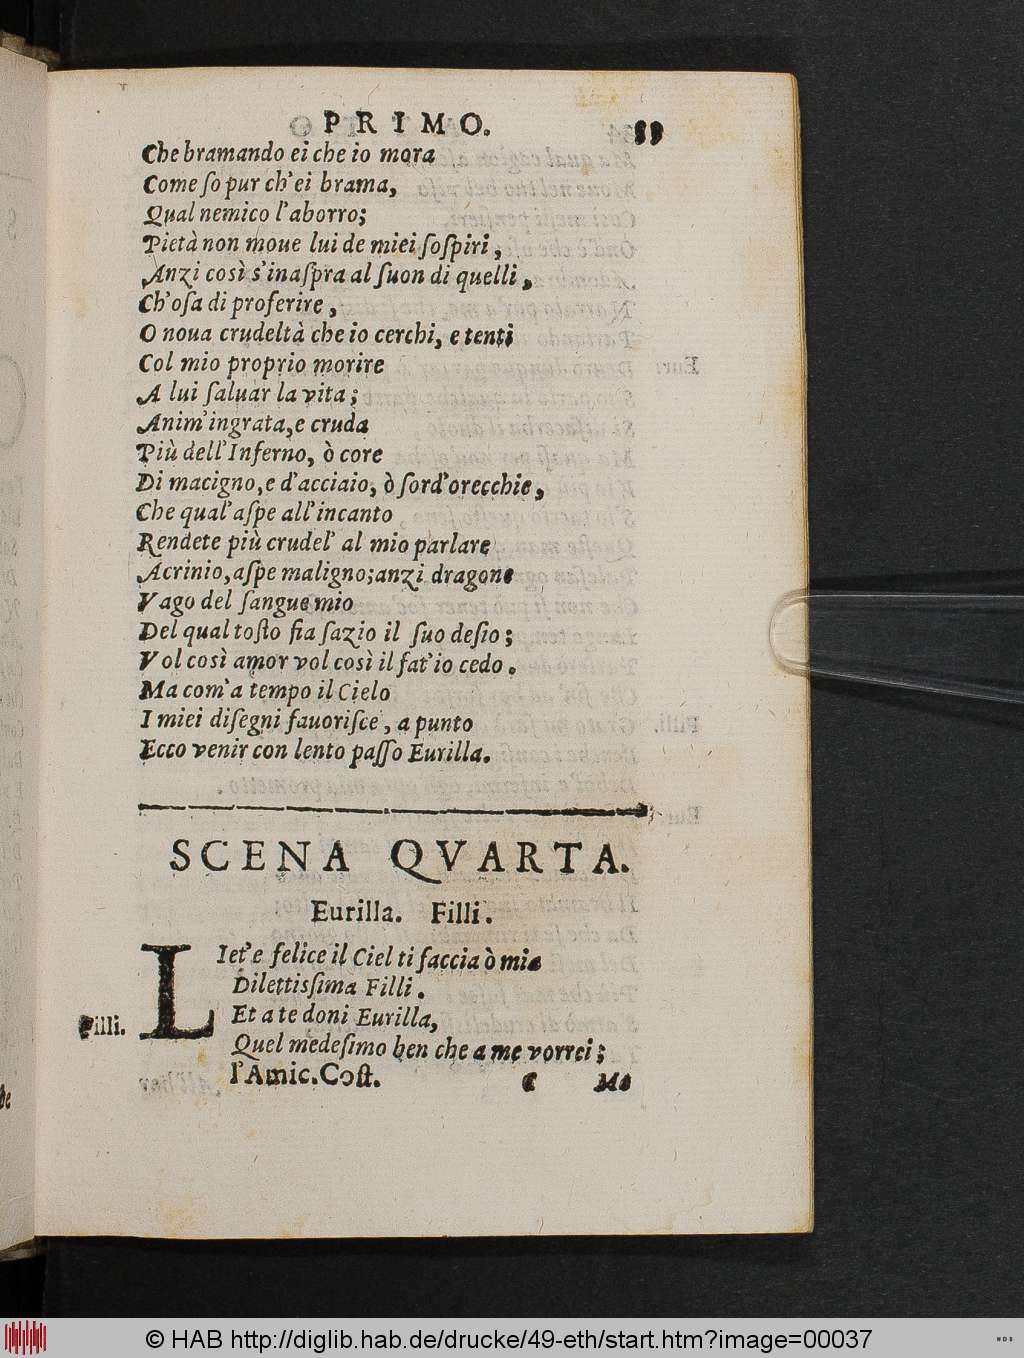 PRIMO.
Che bramando ei che io mora
Come ſo pur ch'ei brama,
Qual nemico l'aborro;
Pietà non moue lui de miei ſoſpiri,
Anzi così s'inaſpra al ſuon di quelli,
Ch'oſa di proferire,
O noua crudeltà che io cerchi, e tenti
Col mio proprio morire
A lui ſaluar la vita;
Anim'ingrata, e cruda
Più dell'Inferno, ò core
Di macigno, e d'acciaio, ò ſord'orecchie,
Che qual'aſpe all'incanto
Rendete più crudel' al mio parlare
Acrinio, aſpe maligno; anzi dragone
Vago del ſangue mio
Del qual toſto fia ſazio il ſuo deſio;
Vol così amor vol così il fat'io cedo.
Ma com'a tempo il Cielo
I miei diſegni fauoriſce, a punto
Ecco venir con lento paſſo Eurilla.
SCENA QVARTA.
Eurilla. Filli.
LIet'e felice il Ciel ti faccia ò mia
Dilettiſſima Filli.
Filli. Et a te doni Eurilla,
Quel medeſimo ben che a me vorrei;
l'Amic. Coſt. C Ma
© HAB http://diglib.hab.de/drucke/49-eth/start.htm?image=00037